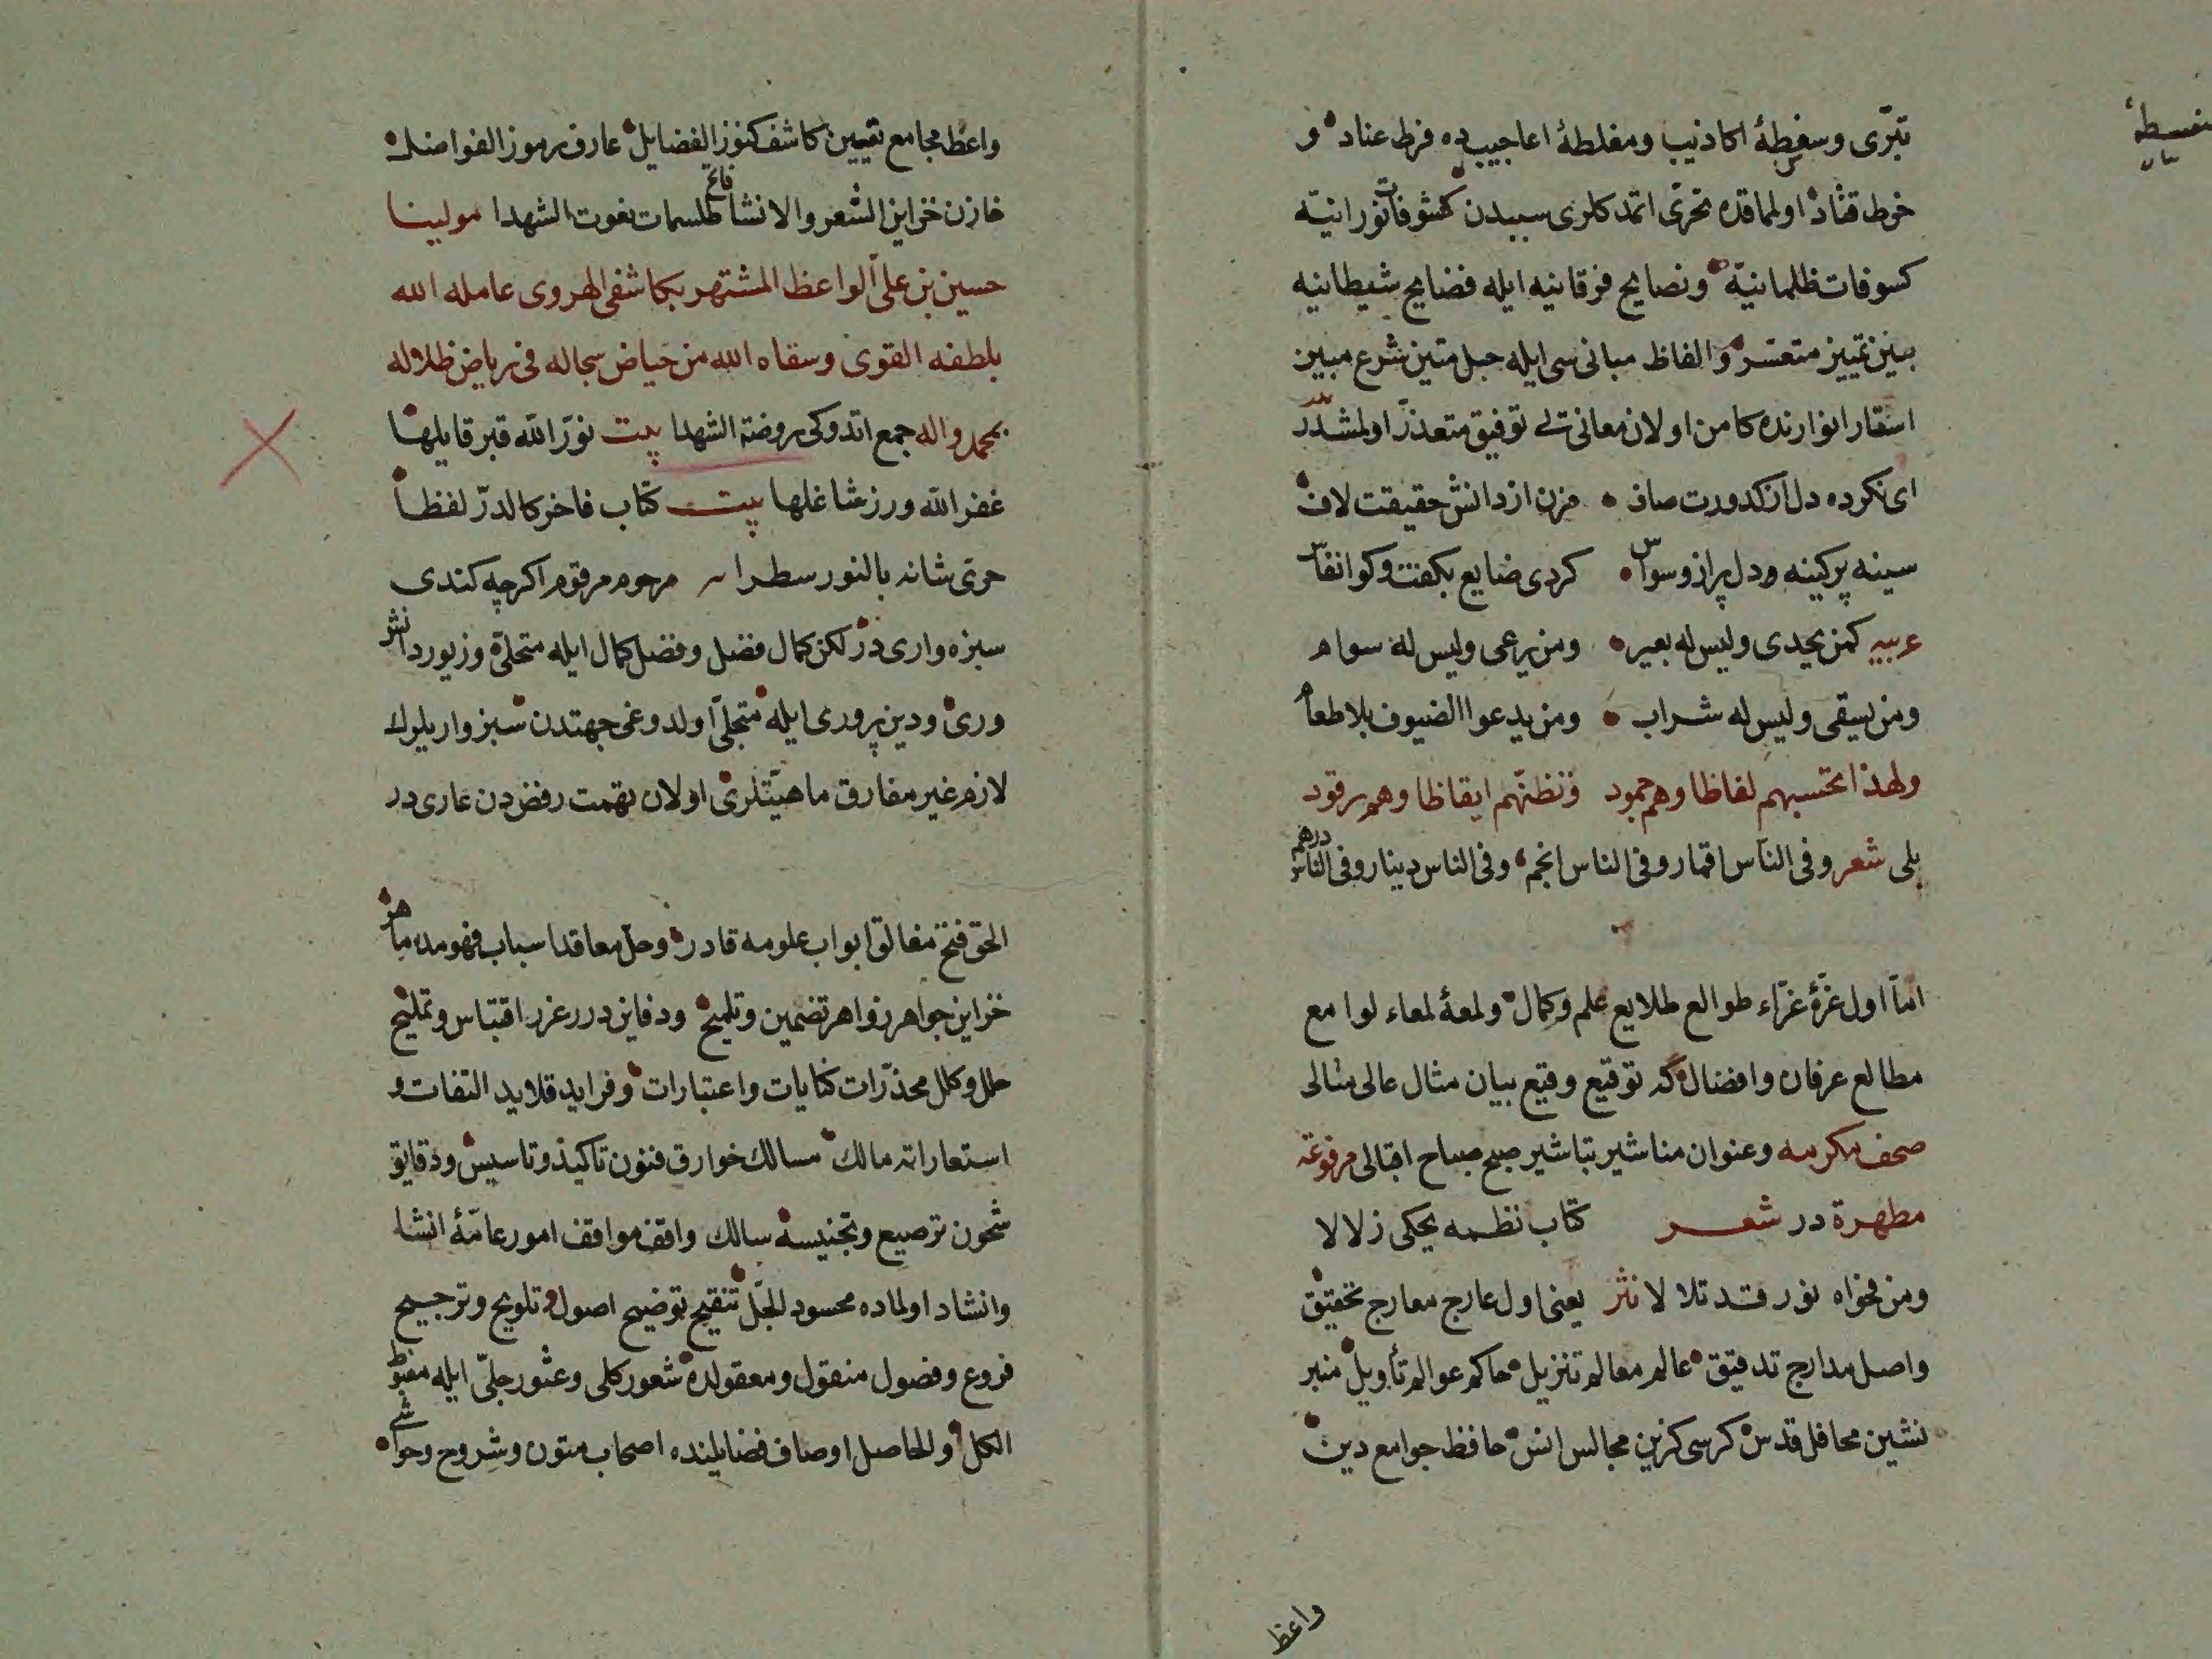 تبرّى وسفطۀ اكاذيب ومغلطۀ اعاجيبده فرط عناد و
سفسطۀ
خرط قتاد اولماقده تحرّى اتمدكلرى سببدن كشوفات نورانيّه
كسوفات ظلمانيّه ونصايح فرقانيه ايله فضايح شيطانيه
بينن تمييز متعسر والفاظ مبانى سى ايله حبل متين شرع مبين
استار انوارنده كامن اولان معانى توفيق متعذر اولمشدر
اى نكرده دل از كدورت صاف مزن از دانش حقيقت لاف
سينه پر كينه ودل پر از وسواس كردى ضايع بكفت وكو انفاس
عربيه كمن يحدى وليس له بعير ومن يرعى وليس له سوام
ومن يسقى وليس له شراب ومن يدعوا الضيوف بلا طعام
ولهذا تحسبهم لفاظا وهم جمود وتظنّهم ايقاظا وهم رقود
بلى شعر وفى الناس اقمار وفى الناس انجم وفى الناس دينار وفى الناس درهم
امّا اول غرّۀ غرّاء طوالع طلايع علم وكمال ولمعۀ لمعاء لوامع
مطالع عرفان وافضال كه توقيع وقيع بيان مثال عالى منالى
صحف مكرمه وعنوان مناشير تباشير صبح صباح اقبالى مرفوعة
مطهرة در شعر كتاب نظمه يحكى زلالا
ومن فحواه نور قد تلا لا نثر يعنى اول عارج معارج تحقيق
واصل مدارج تدقيق عالم معالم تنزيل حاكم عوالم تأويل منبر
نشين محافل قدس كرسى كزين مجالس انس حافظ جوامع دين
واعظ
واعظ مجامع تعيين كاشف كنوز الفضايل عارف رموز الفواضل
خازن خزاين الشعر والانشا فاتح طلسمات نعوت الشهدا مولينا
حسين بن على الواعظ المشتهر بكاشفى الهروى عامله الله
بلطفه القوى وسقاه الله من حياض سجاله فى رياض ظلاله
بمحمد واله جمع اتدوكى روضة الشهدا بيت نوّر الله قبر قايلها
غفر الله ورز شاغلها بيت كتاب فاخر كالدرّ لفظا
حرى شانه بالنور سطرا مرحوم مرقوم اكرچه كندى
سبزه وارى در لكن كمال فضل وفضل كمال ايله متحلّى وزيور دانش
ورى ودين پرورى ايله متجلّى اولدوغى جهتدن سبزواريلرك
لازم غير مفارق ماهيّتلرى اولان تهمت رفض دن عارى در
الحق فتح مغالق ابواب علومه قادر وحلّ معاقد اسباب فهومده ماهر
خزاين جواهر زواهر تضمين وتلميح ودفاين درر غرر اقتباس وتمليح
حلل وكلل مخدّرات كنايات واعتبارات وفرايد قلايد التفات و
استعاراته مالك مسالك خوارق فنون تاكيد وتاسيس ودقايق
شحون ترصيع وتجنيسه سالك واقف مواقف امور عامّۀ انشا
وانشاد اولماده محسود الجلّ تنقيح توضيح اصول وتلويح وترجيح
فروع وفصول منقول ومعقولده شعور كلى وعثور جلىّ ايله مغبوط
الكل والحاصل اوصاف فضايلنده اصحاب متون وشروح وحواشى